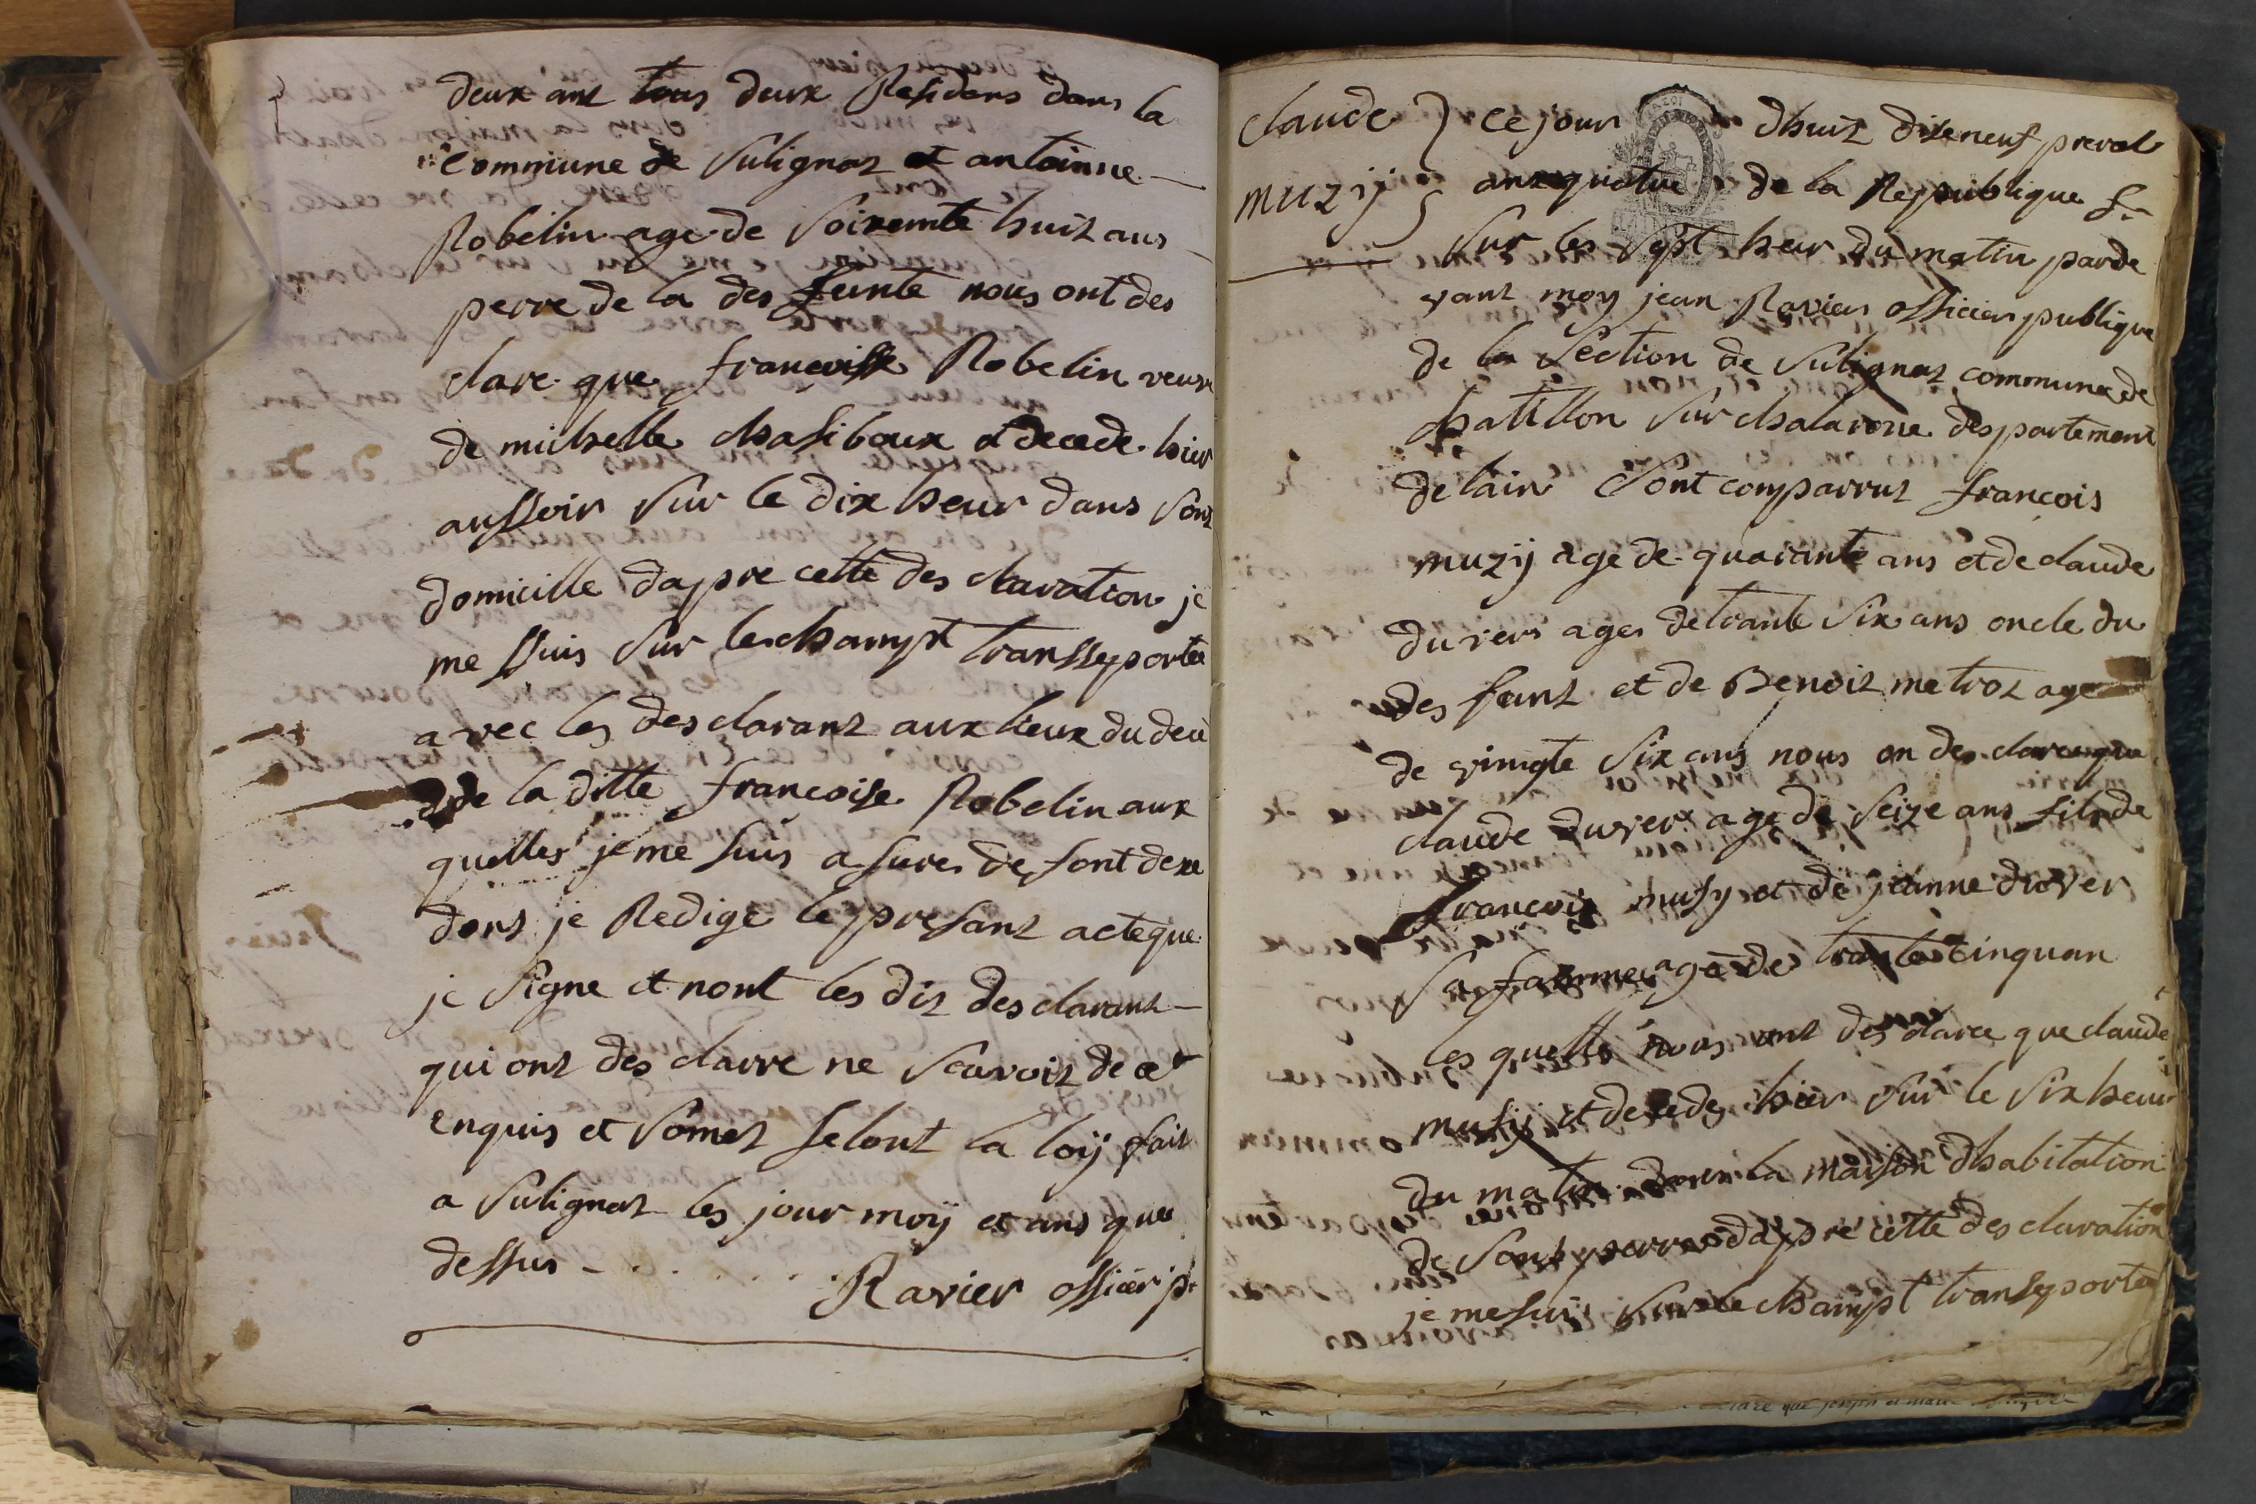 deux ant tous deux Residans dans la
commune de Sulignat et antoinne
Robelin age de Soixente huit ans
perre de la des funte nous ont des
clare que francoisse Robelin veuve
de michelle chasiboux a decede hier
aussoir Sur le dix heur dans Sont
domicille dapre cette des claration je
me suis Sur le champt transsportee
avec les des clarant aux lieux du decè
de la ditte francoise Robelin aux
quelles je me suis a sures de sont dexe
dont je Redige le presant acte que
je Signe et nont les dit des clarant
qui ont des clarre ne Scavoir de ce
enquis et Somet selont la loij fait
a Sulignat les jour moij et ans que
dessus
Ravier officier p.
claude
muzij
Ce jour dhuit dixneuf preval
anz quatre de la Republique f.
Sur les Sept heur du matin parde
vant moy jean Ravier officier publique
de la Section de Sulignat commune de
chatillon Sur chalarone despartement
de lain Sont comparrut françois
muzij age de quarante ans et de claude
duver ages de trante Six ans oncle du
des funt et de Benoit metrot age
de vingte Six ans nous on des clare que
claude duver age de Seize ans fils de
francois musy et de jeanne duver
Sa famme age de trante cinq an
les quelle nous ont des claree que claude
musij et decede hier Sur le Six heur
du matin dans la maison dhabitation
de Sont perre dapre cette des claration
je me suis Sur le champt transportee